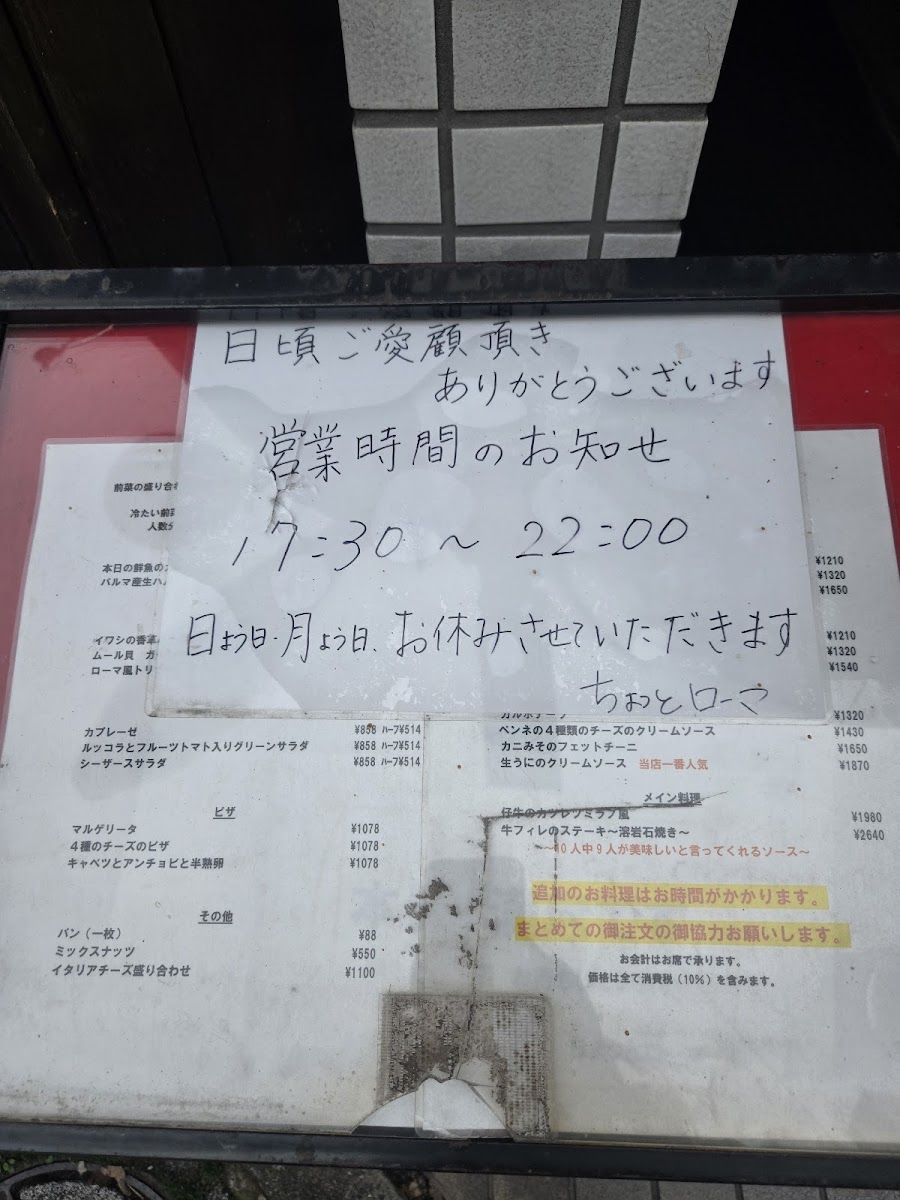 日頃ご愛顧頂き
ありがとうございます
営業時間のお知せ
17:30 ～ 22:00
日よう日・月よう日、お休みさせていただきます
ちょっとローマ
前菜の盛り合わ
冷たい前菜
人数分
本日の鮮魚のカ
パルマ産生ハム
イワシの香草パ
ムール貝 ガー
ローマ風トリッ
カプレーゼ ¥858 ﾊｰﾌ¥514
ルッコラとフルーツトマト入りグリーンサラダ ¥858 ﾊｰﾌ¥514
シーザースサラダ ¥858 ﾊｰﾌ¥514
ピザ
マルゲリータ ¥1078
４種のチーズのピザ ¥1078
キャベツとアンチョビと半熟卵 ¥1078
その他
パン（一枚） ¥88
ミックスナッツ ¥550
イタリアチーズ盛り合わせ ¥1100
¥1210
¥1320
¥1650
¥1210
¥1320
¥1540
カルボナーラ ¥1320
ペンネの４種類のチーズのクリームソース ¥1430
カニみそのフェットチーニ ¥1650
生うにのクリームソース 当店一番人気 ¥1870
メイン料理
仔牛のカツレツミラノ風 ¥1980
牛フィレのステーキ～溶岩石焼き～ ¥2640
～10人中９人が美味しいと言ってくれるソース～
追加のお料理はお時間がかかります。
まとめての御注文の御協力お願いします。
お会計はお席で承ります。
価格は全て消費税（10%）を含みます。